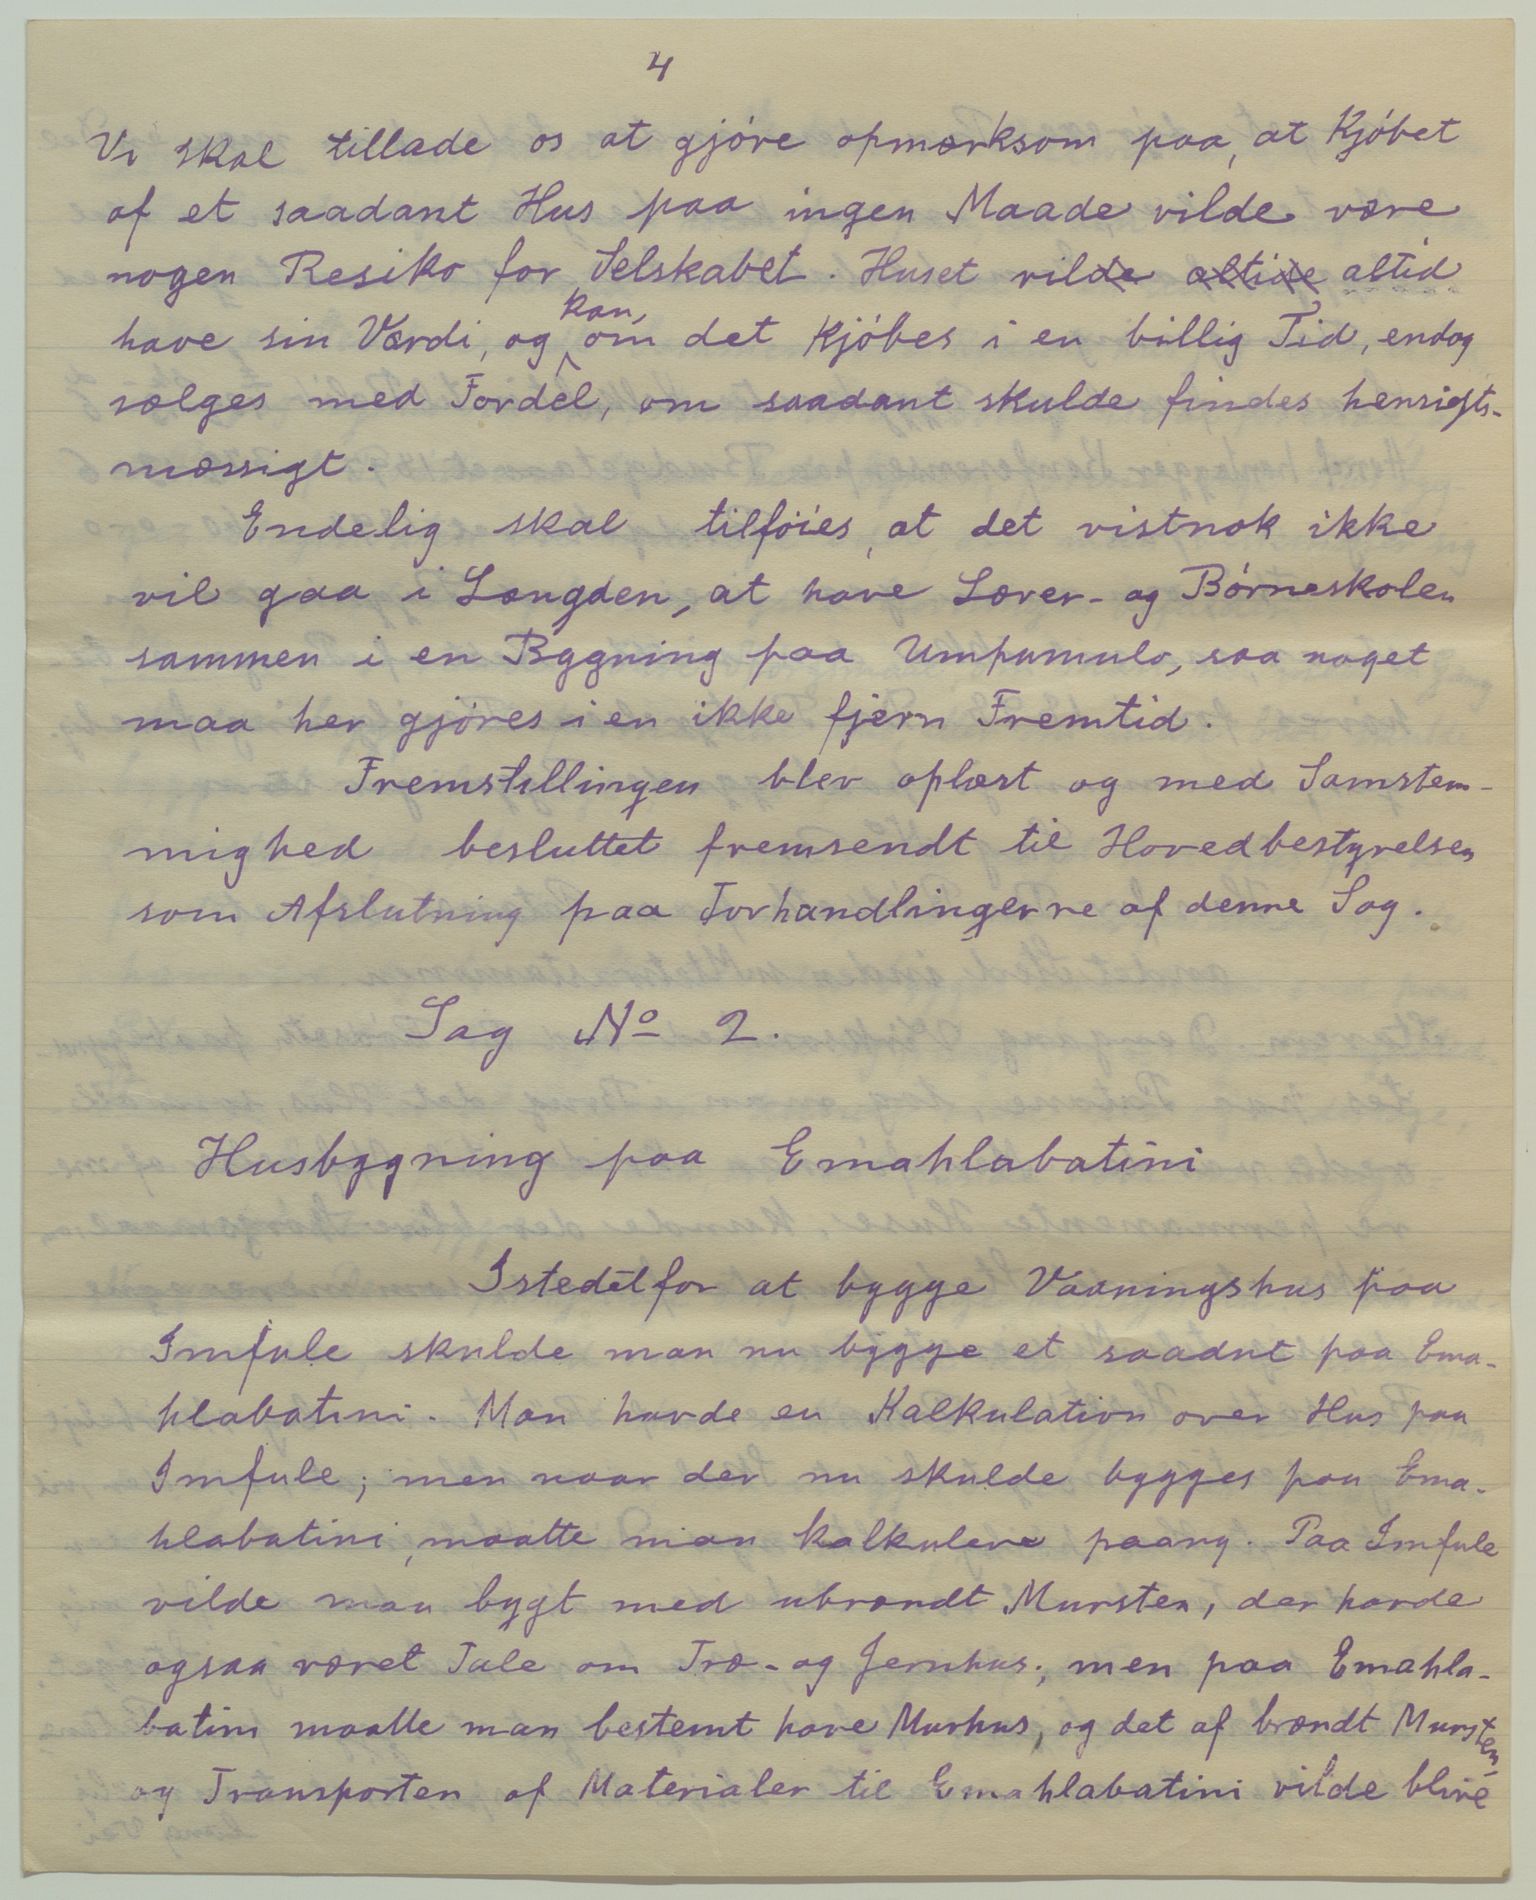 4
Vi skal tillade os at gjöre opmærksom paa, at Kjöbet
af et saadant Hus paa ingen Maade vilde være
nogen Resiko for Selskabet. Huset vilde altide altid
have sin Værdi, og kan, om det kjöbes i en billig Tid, endog
sælges med Fordel, om saadant skulde findes hensigts-
mæssigt.
Endelig skal tilföies, at det vistnok ikke
vil gaa i Længden, at have Lærer- og Börneskolen
sammen i en Bygning paa Umpumulo, saa noget
maa her gjöres i en ikke fjern Fremtid.
Fremstillingen blev oplæst og med Samstem-
mighed besluttet fremsendt til Hovedbestyrelsen
som Afslutning paa Forhandlingerne af denne Sag.
Sag No 2.
Husbygning paa Emahlabatini
Istedetfor at bygge Vaaningshus paa
Imfule skulde man nu bygge et saadnt paa Ema-
hlabatini. Man havde en Kalkulation over Hus paa
Imfule; men naar der nu skulde bygges paa Ema-
hlabatini, maatte man kalkulere paany. Paa Imfule
vilde man bygt med ubrændt Mursten, der havde
ogsaa været Tale om Træ- og Jernhus; men paa Emahla-
batini maatte man bestemt have Murhus, og det af brændt Mursten,
og Transporten af Materialer til Emahlabatini vilde blive